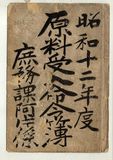 昭和十二年度
原料受入命令簿
庶務課